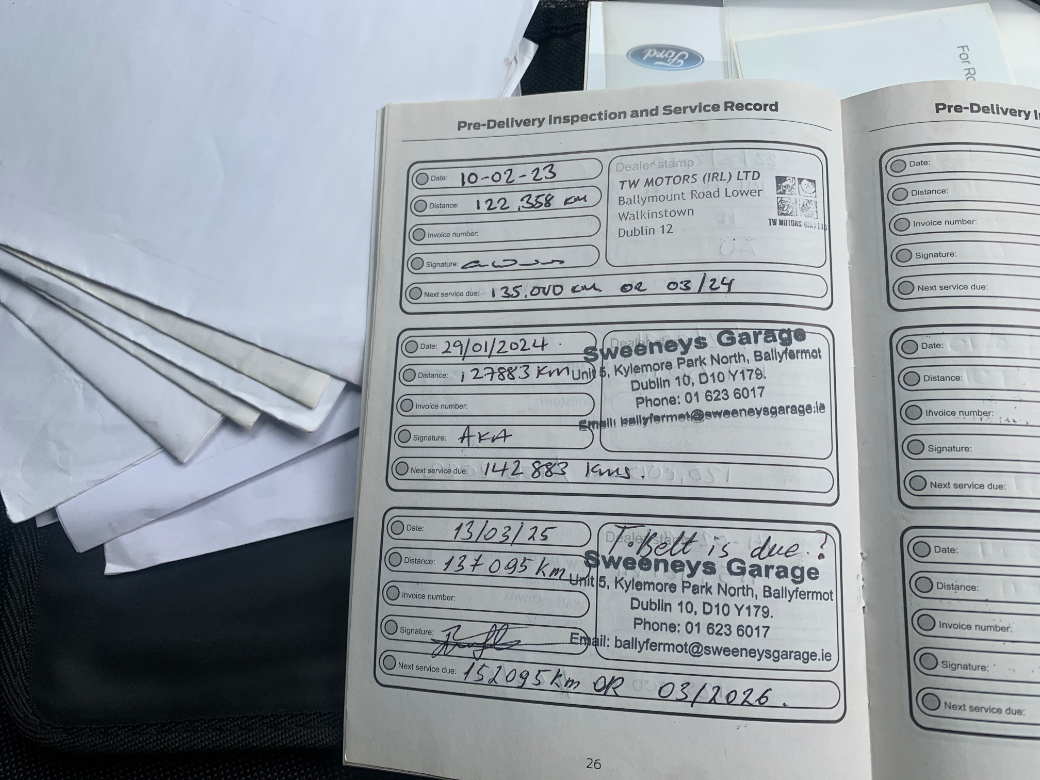 Ford
For Ro
Pre-Delivery Inspection and Service Record
Date: 10-02-23
Distance: 122,358 km
Invoice number:
Signature:
Next service due: 135,000 km or 03/24
Dealer stamp
TW MOTORS (IRL) LTD
Ballymount Road Lower
Walkinstown
Dublin 12
TW MOTORS
Date: 29/01/2024
Distance: 127883 Km
Invoice number:
Signature: AKA
Next service due: 142 883 kms.
Sweeneys Garage
Unit 5, Kylemore Park North, Ballyfermot
Dublin 10, D10 Y179.
Phone: 01 623 6017
Email: ballyfermot@sweeneysgarage.ie
Date: 13/03/25
Distance: 137095 km
Invoice number:
Signature:
Next service due: 152095 km OR 03/2026.
T.Belt is due?
Sweeneys Garage
Unit 5, Kylemore Park North, Ballyfermot
Dublin 10, D10 Y179.
Phone: 01 623 6017
Email: ballyfermot@sweeneysgarage.ie
26
Pre-Delivery I
Date:
Distance:
Invoice number:
Signature:
Next service due:
Date:
Distance:
Invoice number:
Signature:
Next service due:
Date:
Distance:
Invoice number:
Signature:
Next service due: